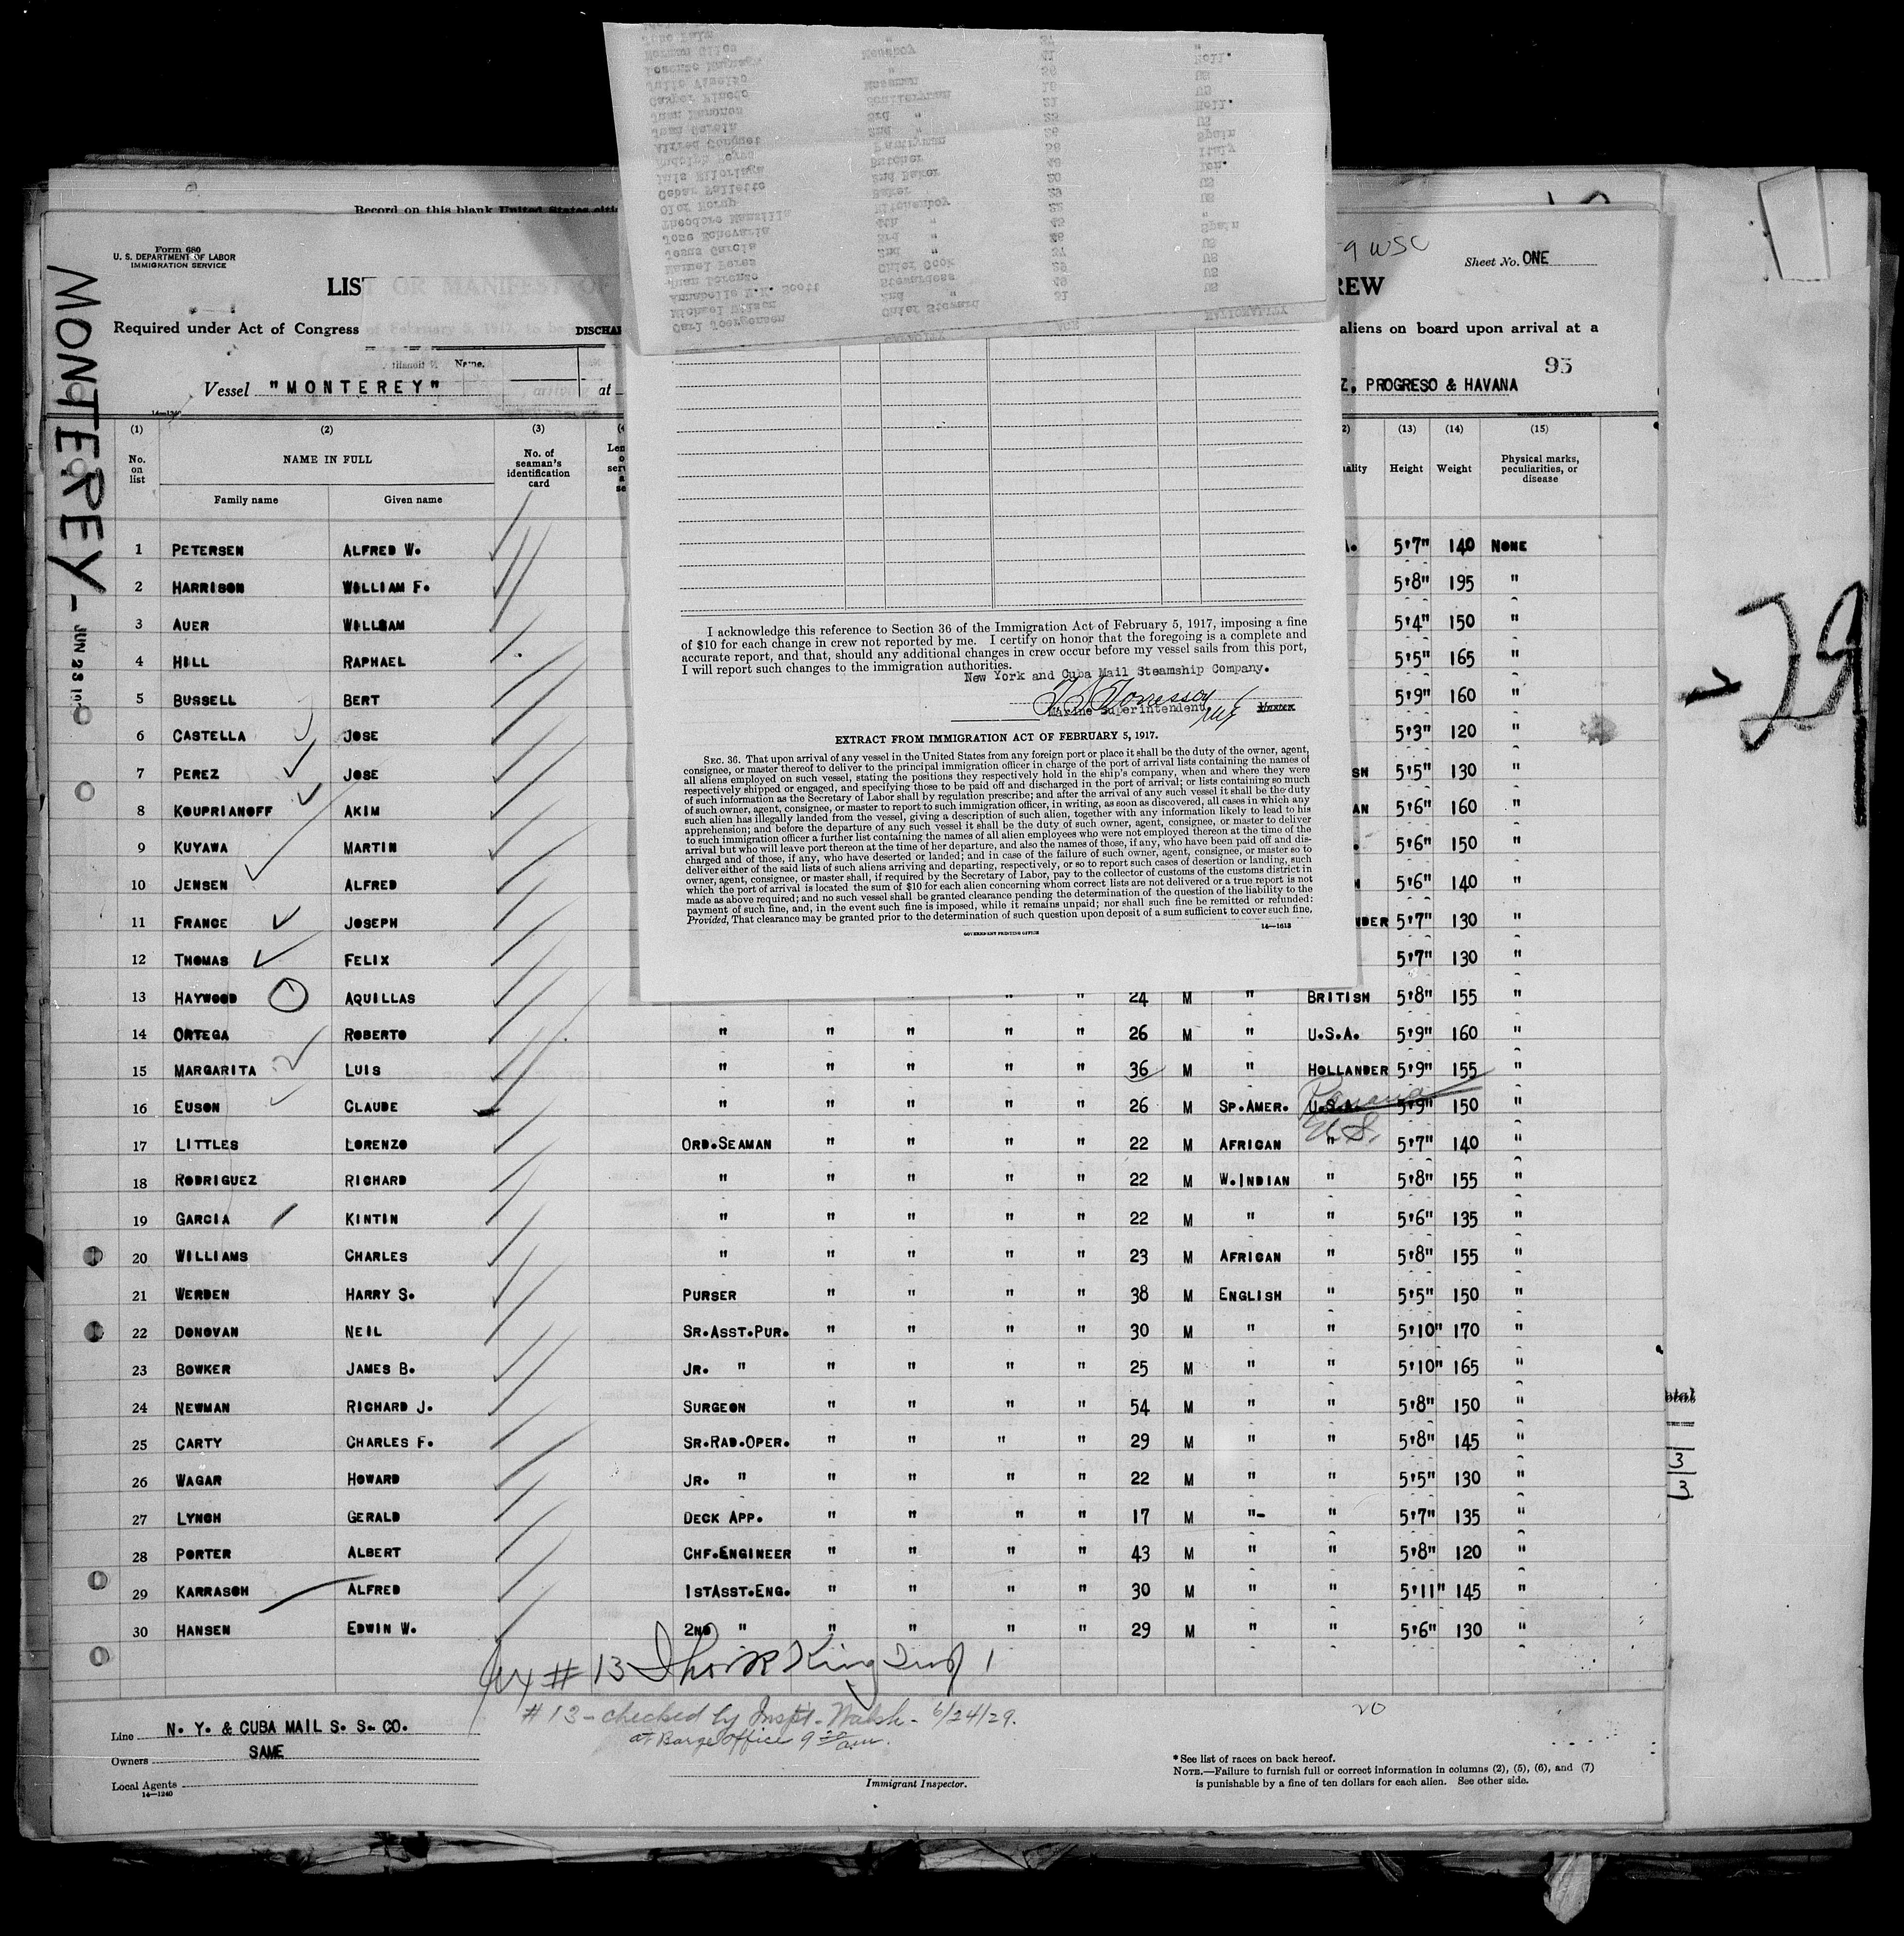 Jose Pais "
Norman Giles Messboy 41 Holl.
Lorenzo " 36 US
Julio Messman 18 US
Casper Sculleryman 21 Holl.
Juan 3rd " 23 US
Juan Garcia 2nd " 26 Spain
Alfred Pantryman 58 Italy
Rudolph Butcher
Luis 2nd Baker 20 US
Cesar Baker 29 US
Olof Kitchenboy "
Theodore Mansilla 4th " 45 Spain
Jose Echevaria 3rd " US
Jesus Garcia 2nd " 37 US
Manuel Perez Chief Cook US
Juan Lorenzo Stewardess 49 US
Annabelle Scott 2nd " 31
Carl Joergensen Chief Steward
AGE NATIONALITY
Record on this blank United States
Form 680
U. S. DEPARTMENT OF LABOR
IMMIGRATION SERVICE
9 WSC
Sheet No. ONE
LIST OR MANIFEST OF
REW
Required under Act of Congress of February 5, 1917, to be
DISCHAR
aliens on board upon arrival at a
Name.
93
Vessel "MONTEREY" at
Z, PROGRESO & HAVANA
14—1240
MONTEREY - JUN 23
- 29
(1) (2) (3) (13) (14) (15)
No. on list
NAME IN FULL
Family name Given name
No. of seaman's identification card
Height Weight Physical marks, peculiarities, or disease
1 PETERSEN ALFRED W. A. 5'7" 140 NONE
2 HARRISON WILLIAM F. 5'8" 195 "
3 AUER WILLIAM 5'4" 150 "
4 HILL RAPHAEL 5'5" 165 "
5 BUSSELL BERT 5'9" 160 "
6 CASTELLA JOSE 5'3" 120 "
7 PEREZ JOSE SH 5'5" 130 "
8 KOUPRIANOFF AKIM AN 5'6" 160 "
9 KUYAWA MARTIN 5'6" 150 "
10 JENSEN ALFRED 5'6" 140 "
11 FRANCE JOSEPH NDER 5'7" 130 "
12 THOMAS FELIX 5'7" 130 "
I acknowledge this reference to Section 36 of the Immigration Act of February 5, 1917, imposing a fine
of $10 for each change in crew not reported by me. I certify on honor that the foregoing is a complete and
accurate report, and that, should any additional changes in crew occur before my vessel sails from this port,
I will report such changes to the immigration authorities.
New York and Cuba Mail Steamship Company.
Marine Superintendent Master
EXTRACT FROM IMMIGRATION ACT OF FEBRUARY 5, 1917.
SEC. 36. That upon arrival of any vessel in the United States from any foreign port or place it shall be the duty of the owner, agent,
consignee, or master thereof to deliver to the principal immigration officer in charge of the port of arrival lists containing the names of
all aliens employed on such vessel, stating the positions they respectively hold in the ship's company, when and where they were
respectively shipped or engaged, and specifying those to be paid off and discharged in the port of arrival; or lists containing so much
of such information as the Secretary of Labor shall by regulation prescribe; and after the arrival of any such vessel it shall be the duty
of such owner, agent, consignee, or master to report to such immigration officer, in writing, as soon as discovered, all cases in which any
such alien has illegally landed from the vessel, giving a description of such alien, together with any information likely to lead to his
apprehension; and before the departure of any such vessel it shall be the duty of such owner, agent, consignee, or master to deliver
to such immigration officer a further list containing the names of all alien employees who were not employed thereon at the time of the
arrival but who will leave port thereon at the time of her departure, and also the names of those, if any, who have been paid off and dis-
charged and of those, if any, who have deserted or landed; and in case of the failure of such owner, agent, consignee, or master so to
deliver either of the said lists of such aliens arriving and departing, respectively, or so to report such cases of desertion or landing, such
owner, agent, consignee, or master shall, if required by the Secretary of Labor, pay to the collector of customs of the customs district in
which the port of arrival is located the sum of $10 for each alien concerning whom correct lists are not delivered or a true report is not
made as above required; and no such vessel shall be granted clearance pending the determination of the question of the liability to the
payment of such fine, and, in the event such fine is imposed, while it remains unpaid; nor shall such fine be remitted or refunded:
Provided, That clearance may be granted prior to the determination of such question upon deposit of a sum sufficient to cover such fine.
GOVERNMENT PRINTING OFFICE 14—1613
13 HAYWOOD AQUILLAS " " 24 M " BRITISH 5'8" 155 "
14 ORTEGA ROBERTO " " " " " 26 M " U.S.A. 5'9" 160 "
15 MARGARITA LUIS " " " " " 36 M " HOLLANDER 5'9" 155 "
16 EUSON CLAUDE " " " " " 26 M SP.AMER. U.S.A. Panama 5'9" 150 "
17 LITTLES LORENZO ORD.SEAMAN " " " " 22 M AFRICAN " U.S. 5'7" 140 "
18 RODRIGUEZ RICHARD " " " " " 22 M W.INDIAN " 5'8" 155 "
19 GARCIA KINTIN " " " " " 22 M " " 5'6" 135 "
20 WILLIAMS CHARLES " " " " " 23 M AFRICAN " 5'8" 155 "
21 WERDEN HARRY S. PURSER " " " " 38 M ENGLISH " 5'5" 150 "
22 DONOVAN NEIL SR.ASST.PUR. " " " " 30 M " " 5'10" 170 "
23 BOWKER JAMES B. JR. " " " " " 25 M " " 5'10" 165 "
24 NEWMAN RICHARD J. SURGEON " " " " 54 M " " 5'8" 150 "
25 CARTY CHARLES F. SR.RAD.OPER. " " " " 29 M " " 5'8" 145 "
26 WAGAR HOWARD JR. " " " " " 22 M " " 5'5" 130 "
27 LYNCH GERALD DECK APP. " " " " 17 M "- " 5'7" 135 "
28 PORTER ALBERT CHF.ENGINEER " " " " 43 M " " 5'8" 120 "
29 KARRASCH ALFRED 1STASST.ENG. " " " " 30 M " " 5'11" 145 "
30 HANSEN EDWIN W. 2ND " " " " " 29 M " " 5'6" 130 "
3
3
# 13
# 13 - checked by Inspt. Walsh - 6/24/29.
at Barge Office 9 30 am.
20
Line N. Y. & CUBA MAIL S. S. CO.
Owners SAME
Local Agents
14—1240
Immigrant Inspector.
* See list of races on back hereof.
NOTE.—Failure to furnish full or correct information in columns (2), (5), (6), and (7)
is punishable by a fine of ten dollars for each alien. See other side.